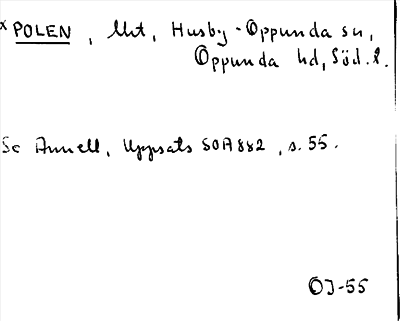 x POLEN, Unt, Husby-Oppunda sn,
Oppunda hd, Söd. l.
Se Annell, Uppsats SOA 882, s. 55.
OJ-55